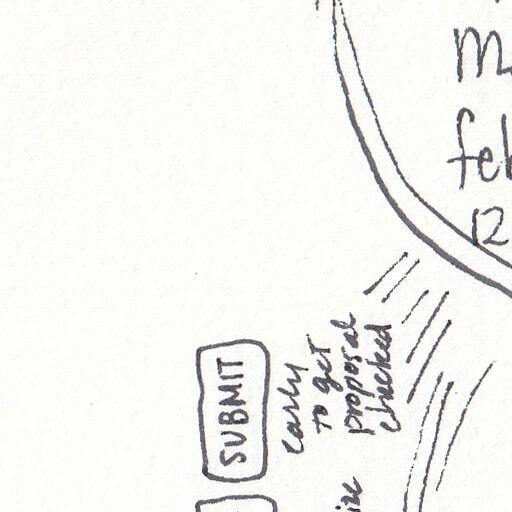 feb
12
SUBMIT
early
to get
proposal
checked